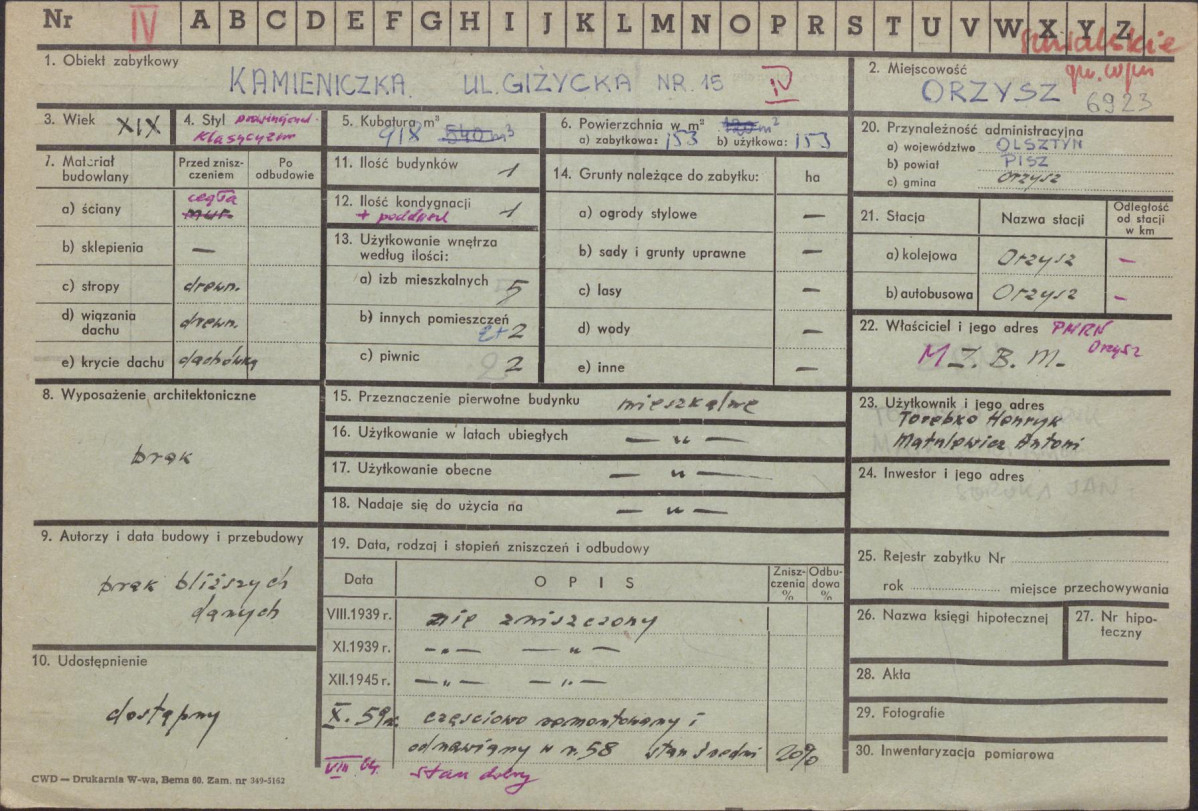 Nr IV A B C D E F G H I J K L M N O P R S T U V W X Y Z
1. Obiekt zabytkowy
KAMIENICZKA. UL. GIŻYCKA NR. 15 IV
2. Miejscowość
ORZYSZ 6923
3. Wiek XIX
4. Styl prowincjonal.
Klasycyzm
5. Kubatura m³
918 540 m³
6. Powierzchnia w m² 120 m²
a) zabytkowa: 153 b) użytkowa: 153
7. Materiał budowlany
Przed zniszczeniem
Po odbudowie
a) ściany cegła mur.
b) sklepienia —
c) stropy drewn.
d) wiązania dachu drewn.
e) krycie dachu dachówka
8. Wyposażenie architektoniczne
brak
9. Autorzy i data budowy i przebudowy
brak bliższych
danych
10. Udostępnienie
dostępny
CWD — Drukarnia W-wa, Bema 60. Zam. nr 349-5162
11. Ilość budynków 1
12. Ilość kondygnacji 1
+ poddasze
13. Użytkowanie wnętrza
według ilości:
a) izb mieszkalnych 5
b) innych pomieszczeń 2+2
c) piwnic 2
14. Grunty należące do zabytku: ha
a) ogrody stylowe —
b) sady i grunty uprawne —
c) lasy —
d) wody —
e) inne —
15. Przeznaczenie pierwotne budynku mieszkalne
16. Użytkowanie w latach ubiegłych — „ —
17. Użytkowanie obecne — „ —
18. Nadaje się do użycia na — „ —
19. Data, rodzaj i stopień zniszczeń i odbudowy
Data OPIS Zniszczenia % Odbudowa %
VIII.1939 r. nie zniszczony
XI.1939 r. — „ — — „ —
XII.1945 r. — „ — — „ —
X. 59 r. częściowo remontowany i
odnawiany w r. 58 stan średni 20%
VIII. 64. stan dobry
20. Przynależność administracyjna
a) województwo OLSZTYN
b) powiat PISZ
c) gmina Orzysz
21. Stacja Nazwa stacji Odległość od stacji w km
a) kolejowa Orzysz —
b) autobusowa Orzysz —
22. Właściciel i jego adres PMRN
Orzysz
M Z. B. M.
23. Użytkownik i jego adres
Torebko Henryk
Matniewicz Antoni
24. Inwestor i jego adres
25. Rejestr zabytku Nr
rok miejsce przechowywania
26. Nazwa księgi hipotecznej
27. Nr hipoteczny
28. Akta
29. Fotografie
30. Inwentaryzacja pomiarowa